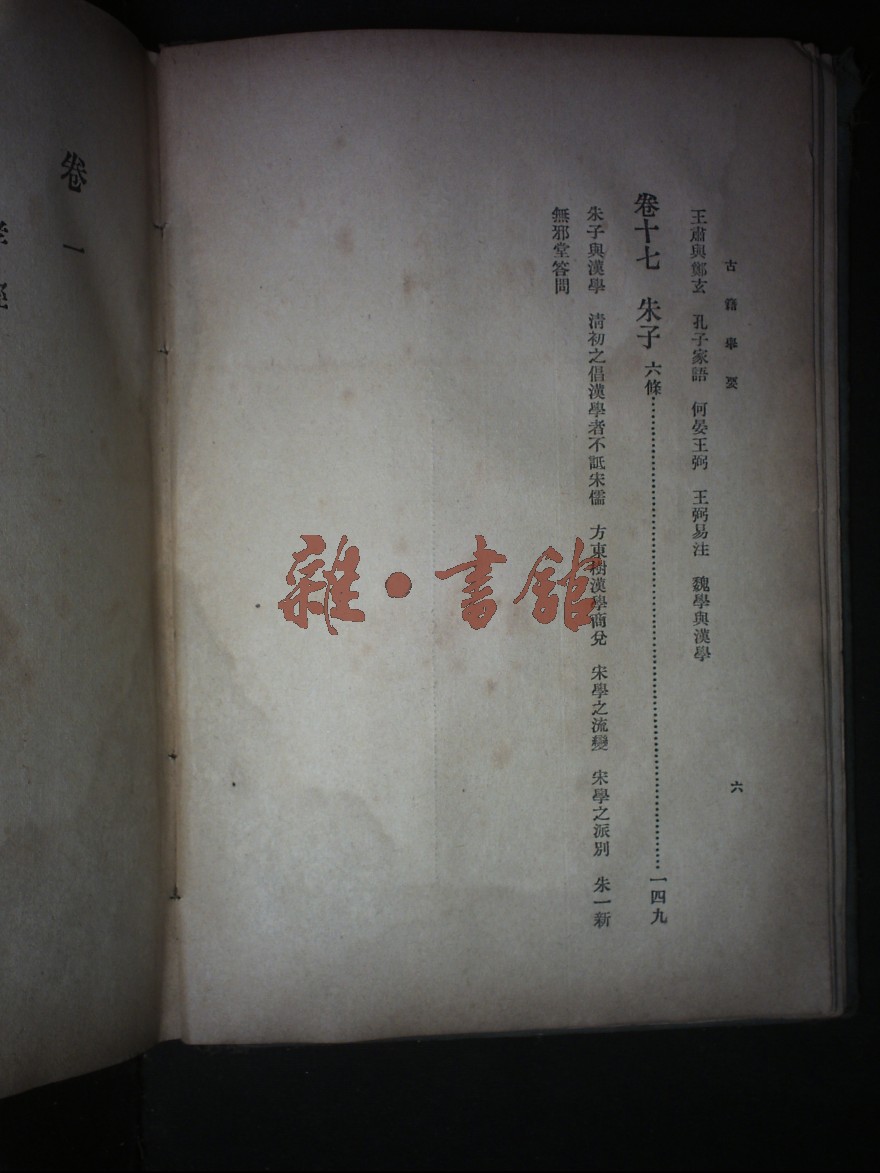 古籍舉要
六
王肅與鄭玄　孔子家語　何晏王弼　王弼易注　魏學與漢學
卷十七　朱子　六條…………………………一四九
朱子與漢學　清初之倡漢學者不詆宋儒　方東樹漢學商兌　宋學之流變　宋學之派別　朱一新
無邪堂答問
卷一
雜·書館